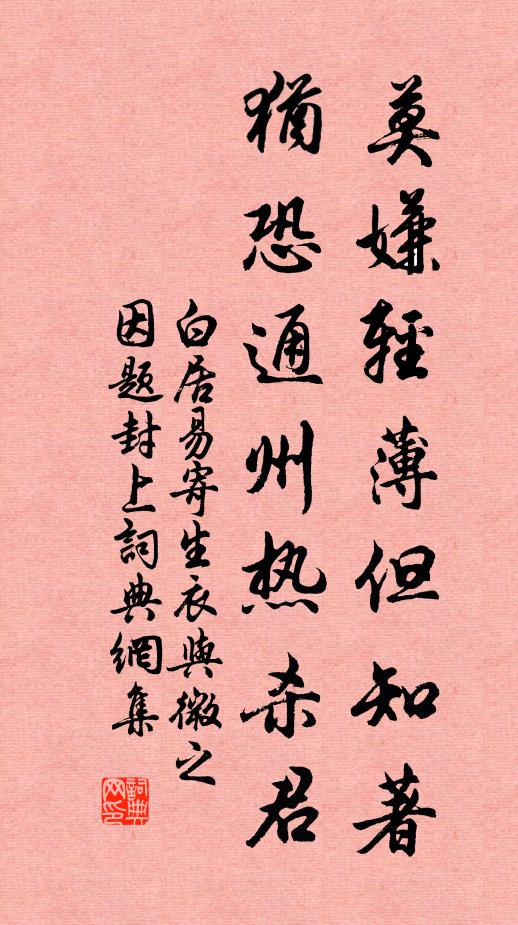 莫嫌輕薄但知著
猶恐通州热杀君
白居易寄生衣與微之
因题封上詞典網集
詞典网印